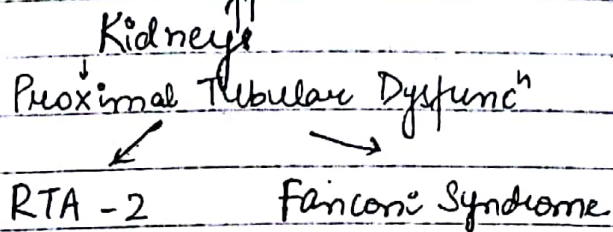 Kidneys
Proximal Tubular Dysfuncⁿ
RTA - 2 Fanconi Syndrome